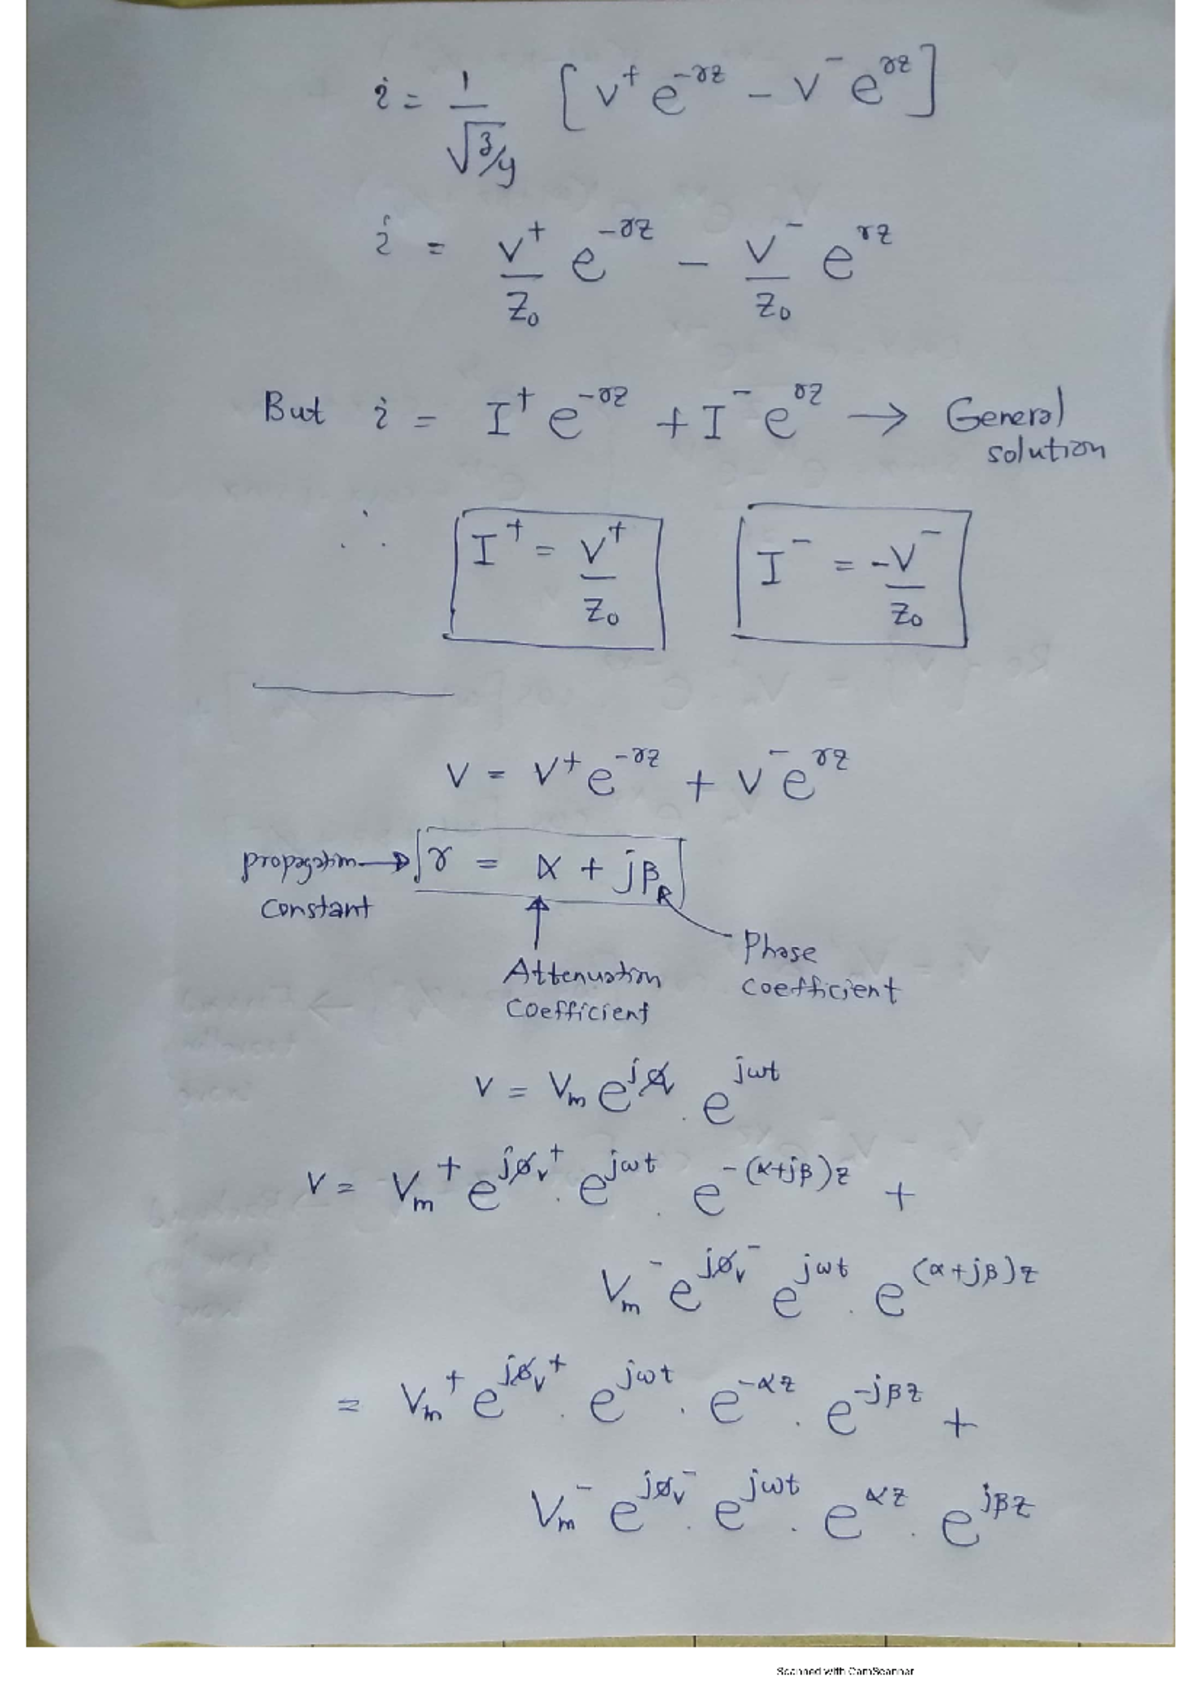 i = 1/√(z/y) [V⁺ e^(-γz) - V⁻ e^(γz)]
i = V⁺/Z₀ e^(-γz) - V⁻/Z₀ e^(γz)
But i = I⁺ e^(-γz) + I⁻ e^(γz) → General
solution
∴ I⁺ = V⁺/Z₀ I⁻ = -V⁻/Z₀
V = V⁺ e^(-γz) + V⁻ e^(γz)
propagation → γ = α + jβ
constant
Phase
coefficient
Attenuation
coefficient
V = Vₘ e^(jφ) . e^(jωt)
V = Vₘ⁺ e^(jφᵥ⁺) . e^(jωt) . e^(-(α+jβ)z) +
Vₘ⁻ e^(jφᵥ⁻) e^(jωt) . e^((α+jβ)z)
= Vₘ⁺ e^(jφᵥ⁺) . e^(jωt) . e^(-αz) . e^(-jβz) +
Vₘ⁻ e^(jφᵥ⁻) . e^(jωt) . e^(αz) . e^(jβz)
Scanned with CamScanner